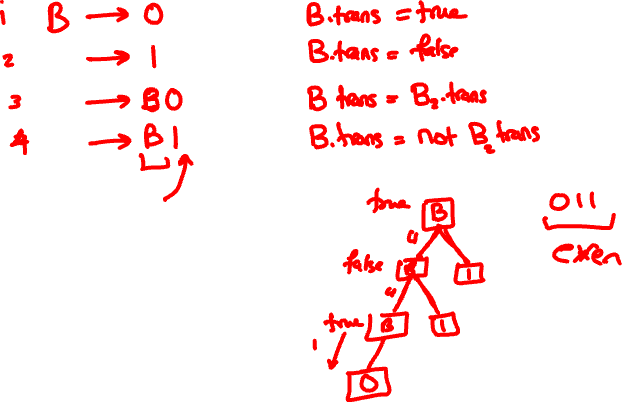 1 B → 0 B.trans = true
2 → 1 B.trans = false
3 → B0 B trans = B₂.trans
4 → B1 B.trans = not B₂ trans
true B 011
4 even
false B 1
4
true B 1
1
0